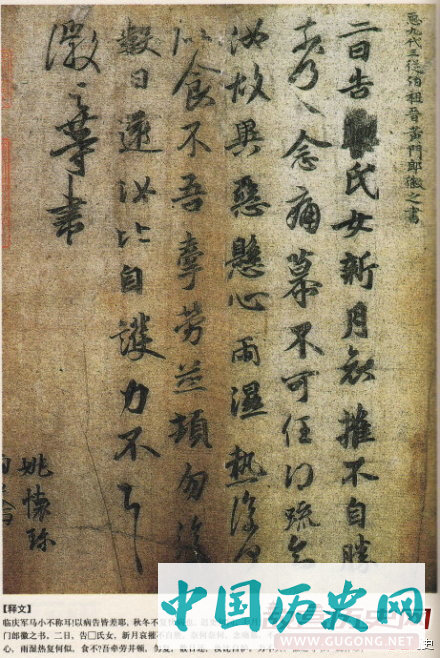 臣九代三從伯祖晉黃門郎徽之書
二日告氏女新月哀摧不自勝
奈何念痛慕不可任得疏知
汝故異惡懸心雨濕熱復何
似食不吾牽勞並頓勿復
數日還汝比自護力不具
徽之等書
姚懷珍
【释文】
临庆军马小不称耳!以病告皆差耶,秋冬不
门郎徽之书。二日,告□氏女,新月哀摧
心,雨湿热复何似,食不?吾牵劳并顿,勿复
中国历史网
WWW.GUGONG.NET